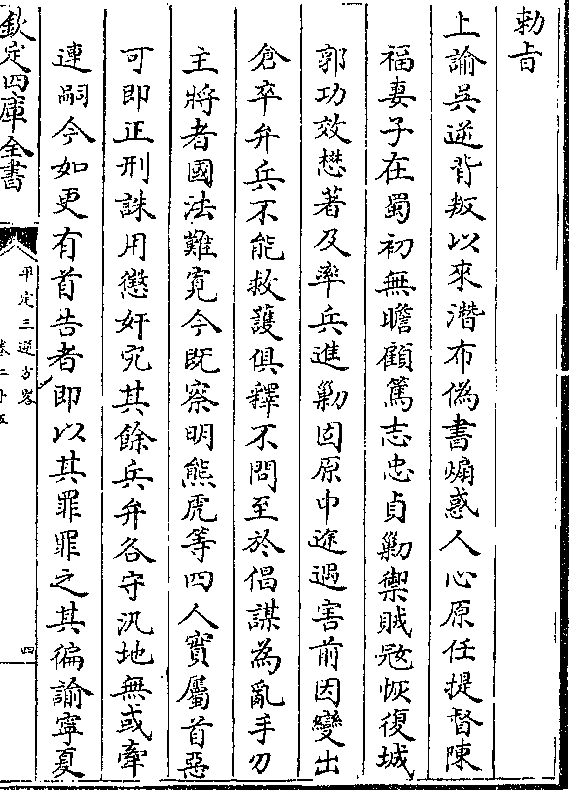 勅旨
上諭吳逆背叛以來潛布偽書煽惑人心原任提督陳
福妻子在蜀初無瞻顧篤志忠貞勦禦賊冦恢復城
郭功效懋著及率兵進勦固原中途遇害前因變出
倉卒弁兵不能救護俱釋不問至於倡謀為亂手刃
主將者國法難寛今既察明熊虎等四人實屬首惡
可即正刑誅用懲奸宄其餘兵弁各守汛地無或牽
連嗣今如更有首告者即以其罪罪之其徧諭寧夏
欽定四庫全書
平定三逆方畧
卷二十五
四